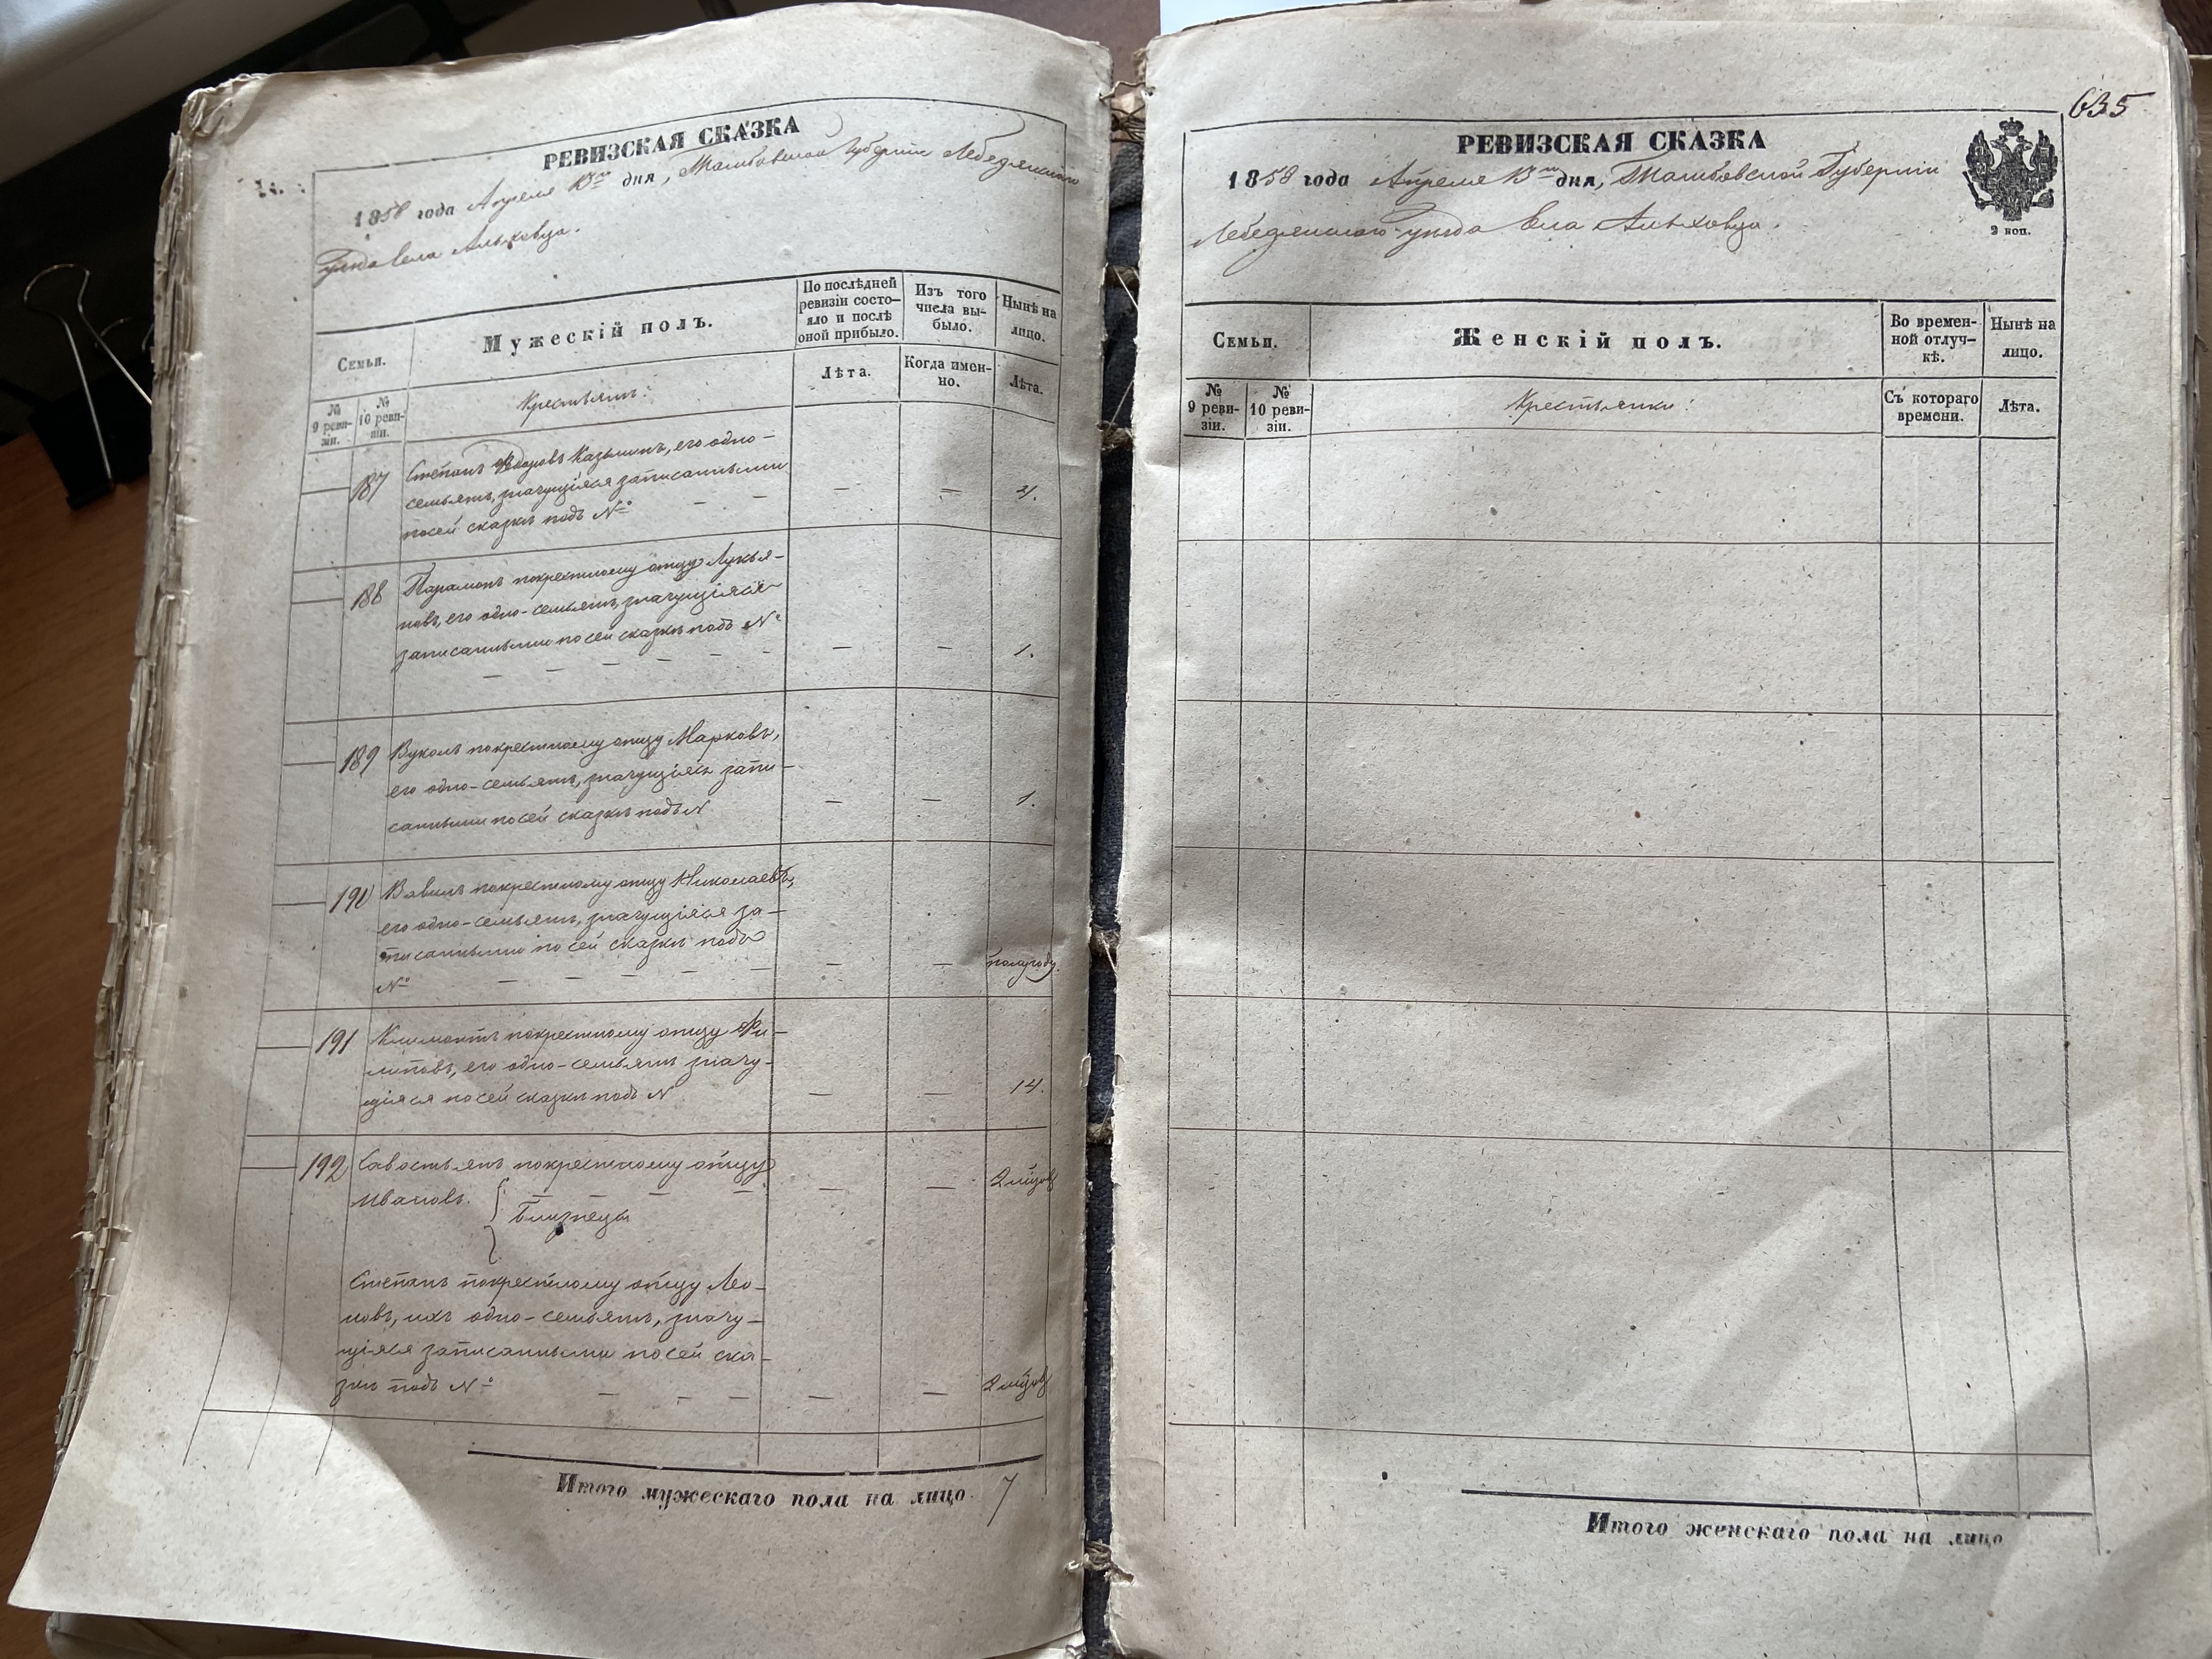 РЕВИЗСКАЯ СКАЗКА
1858 года Апреля 13го дня, Тамбовской Губерніи Лебедянскаго
уѣзда Села Ольховца.
Семьи.
Мужескій полъ.
По послѣдней ревизіи состояло и послѣ оной прибыло.
Изъ того числа выбыло.
Нынѣ на лицо.
№ 9 ревизіи.
№ 10 ревизіи.
Крестьянъ:
Лѣта.
Когда именно.
Лѣта.
187 Степанъ Ѳедоровъ Казьминъ, его одно-
семьянъ, значущіяся записанными
по сей сказкѣ подъ №
188 Парамонъ по крестному отцу Лукья-
новъ, его одно-семьянъ, значущіяся
записанными по сей сказкѣ подъ №
— — 1.
189 Вуколъ по крестному отцу Марковъ,
его одно-семьянъ, значущіяся запи-
санными по сей сказкѣ подъ №
— — 1.
190 Вавилъ по крестному отцу Николаевъ,
его одно-семьянъ, значущіяся за-
писанными по сей сказкѣ подъ
№ — — полугоду.
191 Климонтъ по крестному отцу Фи-
липовъ, его одно-семьянъ значу-
щіяся по сей сказкѣ подъ №
— — 14.
192 Савостьянъ по крестному отцу
Ивановъ. — —
Близнецы
Степанъ по крестному отцу Лео-
новъ, ихъ одно-семьянъ, значу-
щіяся записанными по сей ска-
зки подъ № — —
Итого мужескаго пола на лицо 7
635
РЕВИЗСКАЯ СКАЗКА
1858 года Апреля 13го дня, Тамбовской Губерніи
Лебедянскаго уѣзда Села Ольховца.
2 коп.
Семьи.
Женскій полъ.
Во временной отлучкѣ.
Нынѣ на лицо.
№ 9 ревизіи.
№ 10 ревизіи.
Крестьянки:
Съ котораго времени.
Лѣта.
Итого женскаго пола на лицо